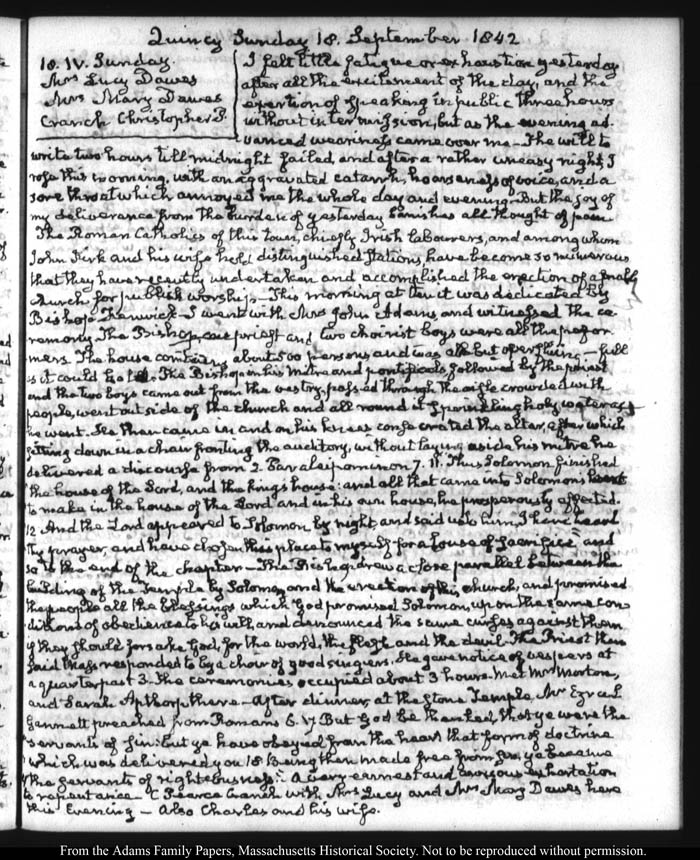 Quincy Sunday 18. September 1842
18. IV. Sunday
Mrs Lucy Dawes
Mrs Mary Dawes
Cranch Christopher P.
I felt little fatigue or exhaustion yesterday
after all the excitement of the day, and the
exertion of speaking in public three hours
without intermission, but as the evening ad-
vanced weariness came over me — The will to
write two hours till midnight failed, and after a rather uneasy night, I
rose this morning, with an aggravated catarrh, hoarseness of voice, and a
sore throat which annoyed me the whole day and evening. But the joy of
my deliverance from the burden of yesterday banishes all thought of pain
The Roman Catholics of this town, chiefly Irish labourers, and among whom
John Kirk and his wife held distinguished stations, have become so numerous
that they have recently undertaken and accomplished the erection of a small
church for publick worship — This morning at ten it was dedicated by
Bishop Fenwick — I went with Mrs John Adams and witnessed the ce-
remony. The Bishop, one priest and two chorist boys were all the perfor-
mers. The house contains about 500 persons and was all but overflowing — full
as it could hold. The Bishop in his mitre and pontificals followed by the priest
and the two boys came out from the vestry, passed through the aisle crowded with
people, went outside of the church and all round it sprinkling holy water as
he went. He then came in and on his knees consecrated the altar, after which
sitting down in a chair fronting the auditory, without laying aside his mitre he
delivered a discourse from 2. Paralepomenon 7. 11. Thus Solomon finished
the house of the Lord, and the king's house: and all that came into Solomon's heart
to make in the house of the Lord and in his own house, he prosperously effected.
12. And the Lord appeared to Solomon by night, and said unto him, I have heard
thy prayer, and have chosen this place to myself for a house of sacrifice" and
so to the end of the chapter — The Bishop drew a close parallel between the
building of the Temple by Solomon, and the erection of this church, and promised
the people all the blessings which God promised Solomon, upon the same con-
ditions of obedience to his will, and denounced the same curses against them
if they should forsake God, for the world, the flesh and the devil. The Priest then
said Mass responded to by a choir of good singers. He gave notice of vespers at
a quarter past 3. The ceremonies occupied about 3 hours. Met Mrs Morton,
and Sarah Apthorp there — After dinner, at the stone Temple Mr Ezra S.
Gannett preached from Romans 6. 17 But God be thanked, that ye were the
servants of sin: but ye have obeyed from the heart that form of doctrine
which was delivered you 18 Being then made free from sin, ye became
the servants of righteousness." A very earnest and exhortation
to repentance. C Pearce Cranch with Mrs Lucy and Mrs Mary Dawes here
this Evening — Also Charles and his wife.
From the Adams Family Papers, Massachusetts Historical Society. Not to be reproduced without permission.